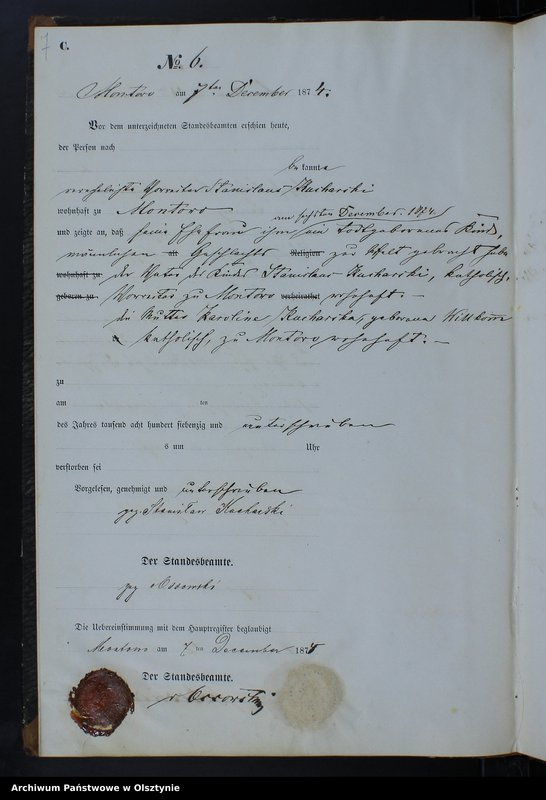 7
C.
No. 6.
Montowo am 7ten December 1874.
Vor dem unterzeichneten Standesbeamten erschien heute,
der Person nach
bekannte
verehelichte Vorreiter Stanislaus Kucharski
wohnhaft zu Montowo
am sechsten December 1874
und zeigte an, daß seine Ehefrau ihm ein todtgeborenes Kind,
männlichen alt Geschlechts Religion zur Welt gebracht habe
wohnhaft zu der Vater des Kindes Stanislaus Kucharski, katholisch,
geboren zu Vorreiter zu Montowo verheirathet wohnhaft. –
die Mutter Karoline Kucharska, geborene Willkomm
katholisch, zu Montowo wohnhaft. –
zu
am ten
des Jahres tausend acht hundert siebenzig und unterschrieben
s um Uhr
verstorben sei
Vorgelesen, genehmigt und unterschrieben
gez. Stanisław Kucharski
Der Standesbeamte.
gez Ossowski
Die Uebereinstimmung mit dem Hauptregister beglaubigt
Montowo am 7 ten December 1874
Der Standesbeamte.
v Ossowski
Archiwum Państwowe w Olsztynie